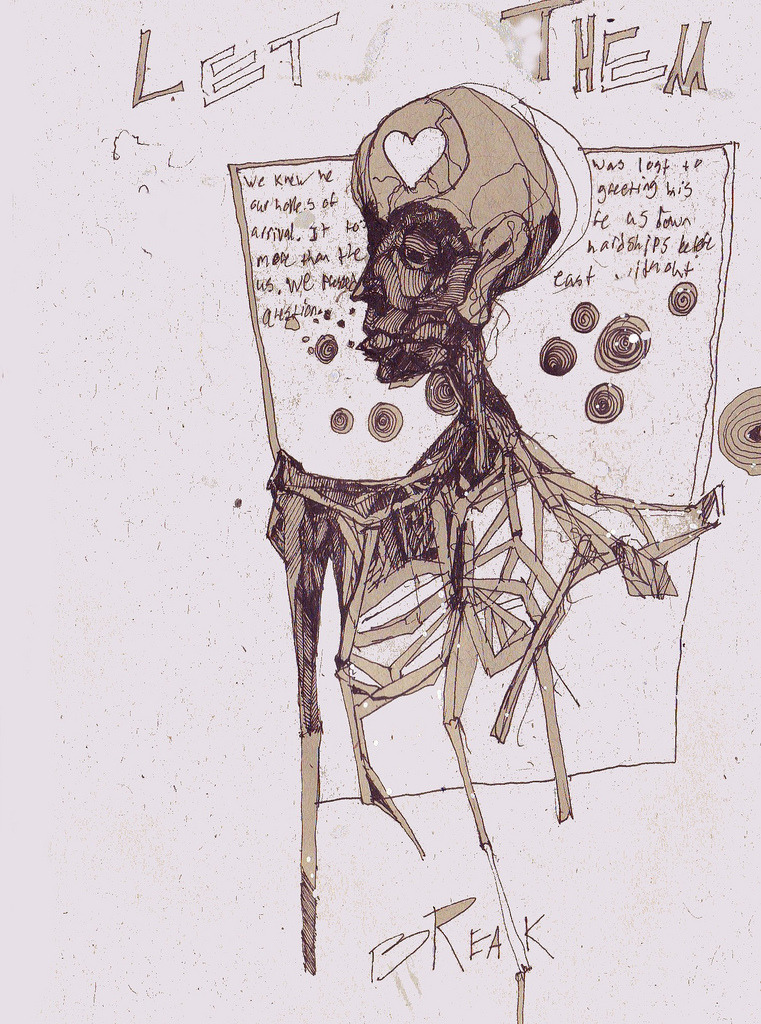 LET THEM
We knew he
our hopes of
arrival. It to
more than the
us. We
question.
was lost to
greeting his
as down
hardships before
east without
BREAK